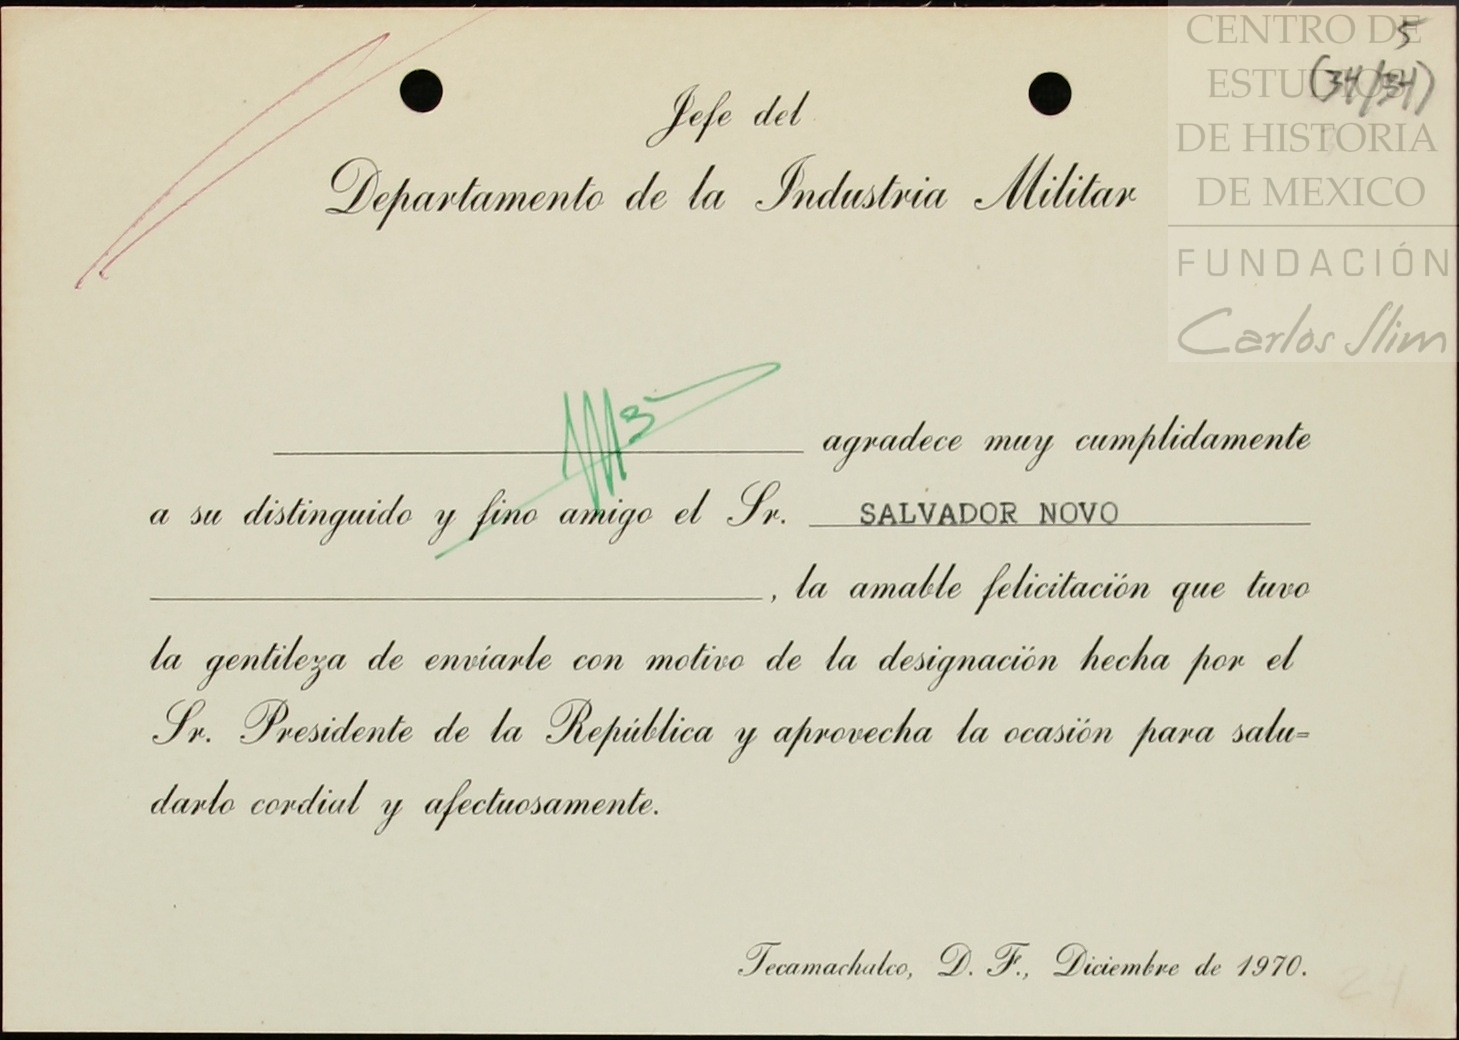 CENTRO DE
ESTUDIOS
DE HISTORIA
DE MEXICO
FUNDACIÓN
Carlos Slim
5
(34/34)
Jefe del
Departamento de la Industria Militar
agradece muy cumplidamente
a su distinguido y fino amigo el Sr. SALVADOR NOVO
, la amable felicitación que tuvo
la gentileza de enviarle con motivo de la designación hecha por el
Sr. Presidente de la República y aprovecha la ocasión para salu=
darlo cordial y afectuosamente.
Tecamachalco, D. F., Diciembre de 1970.
24